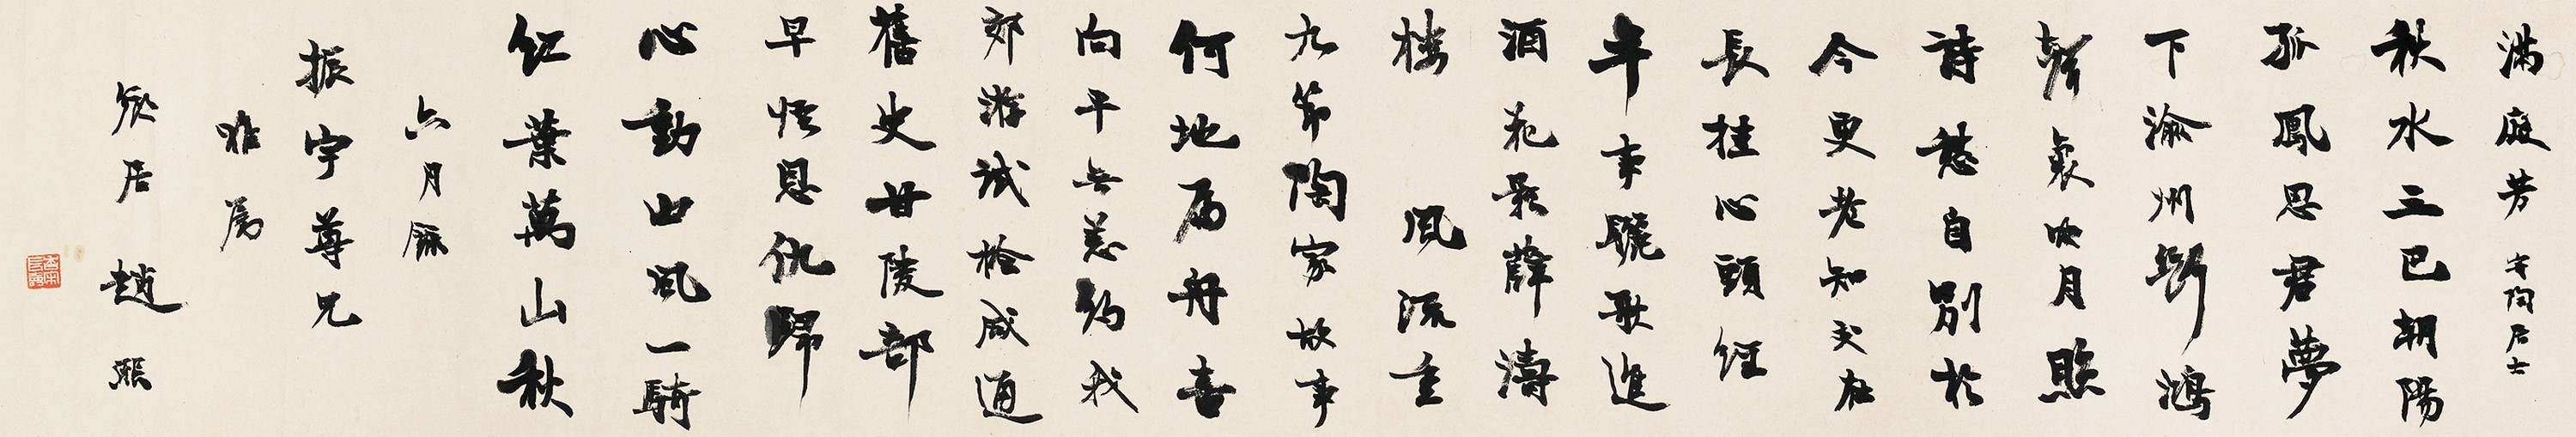 满庭芳 寄陶居士
秋水三巴朝陽
孤鳳思君夢
下渝州断鴻
聲裏吹月照
詩愁自別於
今更老知交在
長挂心頭經
年事驪歌進
酒花影薛濤
楼 風流重
九节陶家故事
何地屬舟喜
向平無恙約我
郊游試檢咸通
舊史甘陵部
早悟恩仇歸
心動山風一騎
红葉萬山秋
六月
振宇尊兄
雅屬
居 趙熙